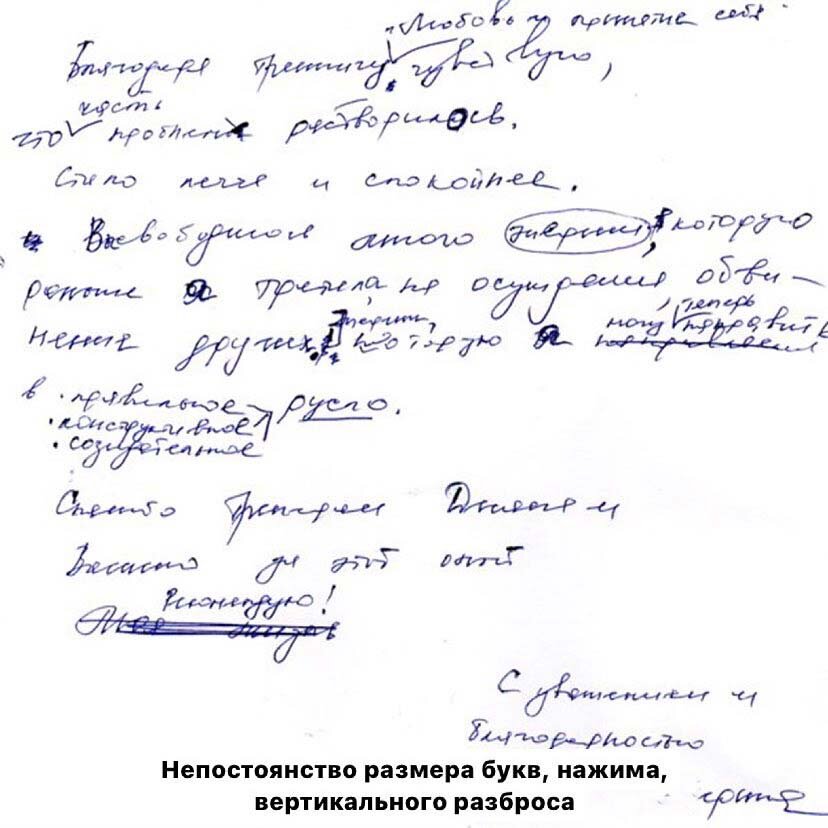 Любовь и принятие себя
Благодаря тренингу чувствую,
часть
что проблем растворилось.
Стало легче и спокойнее.
Высвободилось много энергии, которую
раньше я тратила на осуждения, обви-
нение других. энергию, которую я могу теперь направить
в • правильное русло.
• конструктивное
• созидательное
Спасибо тренерам и
за этот опыт
Рекомендую!
Моя жизнь
С уважением и
благодарностью
Непостоянство размера букв, нажима,
вертикального разброса